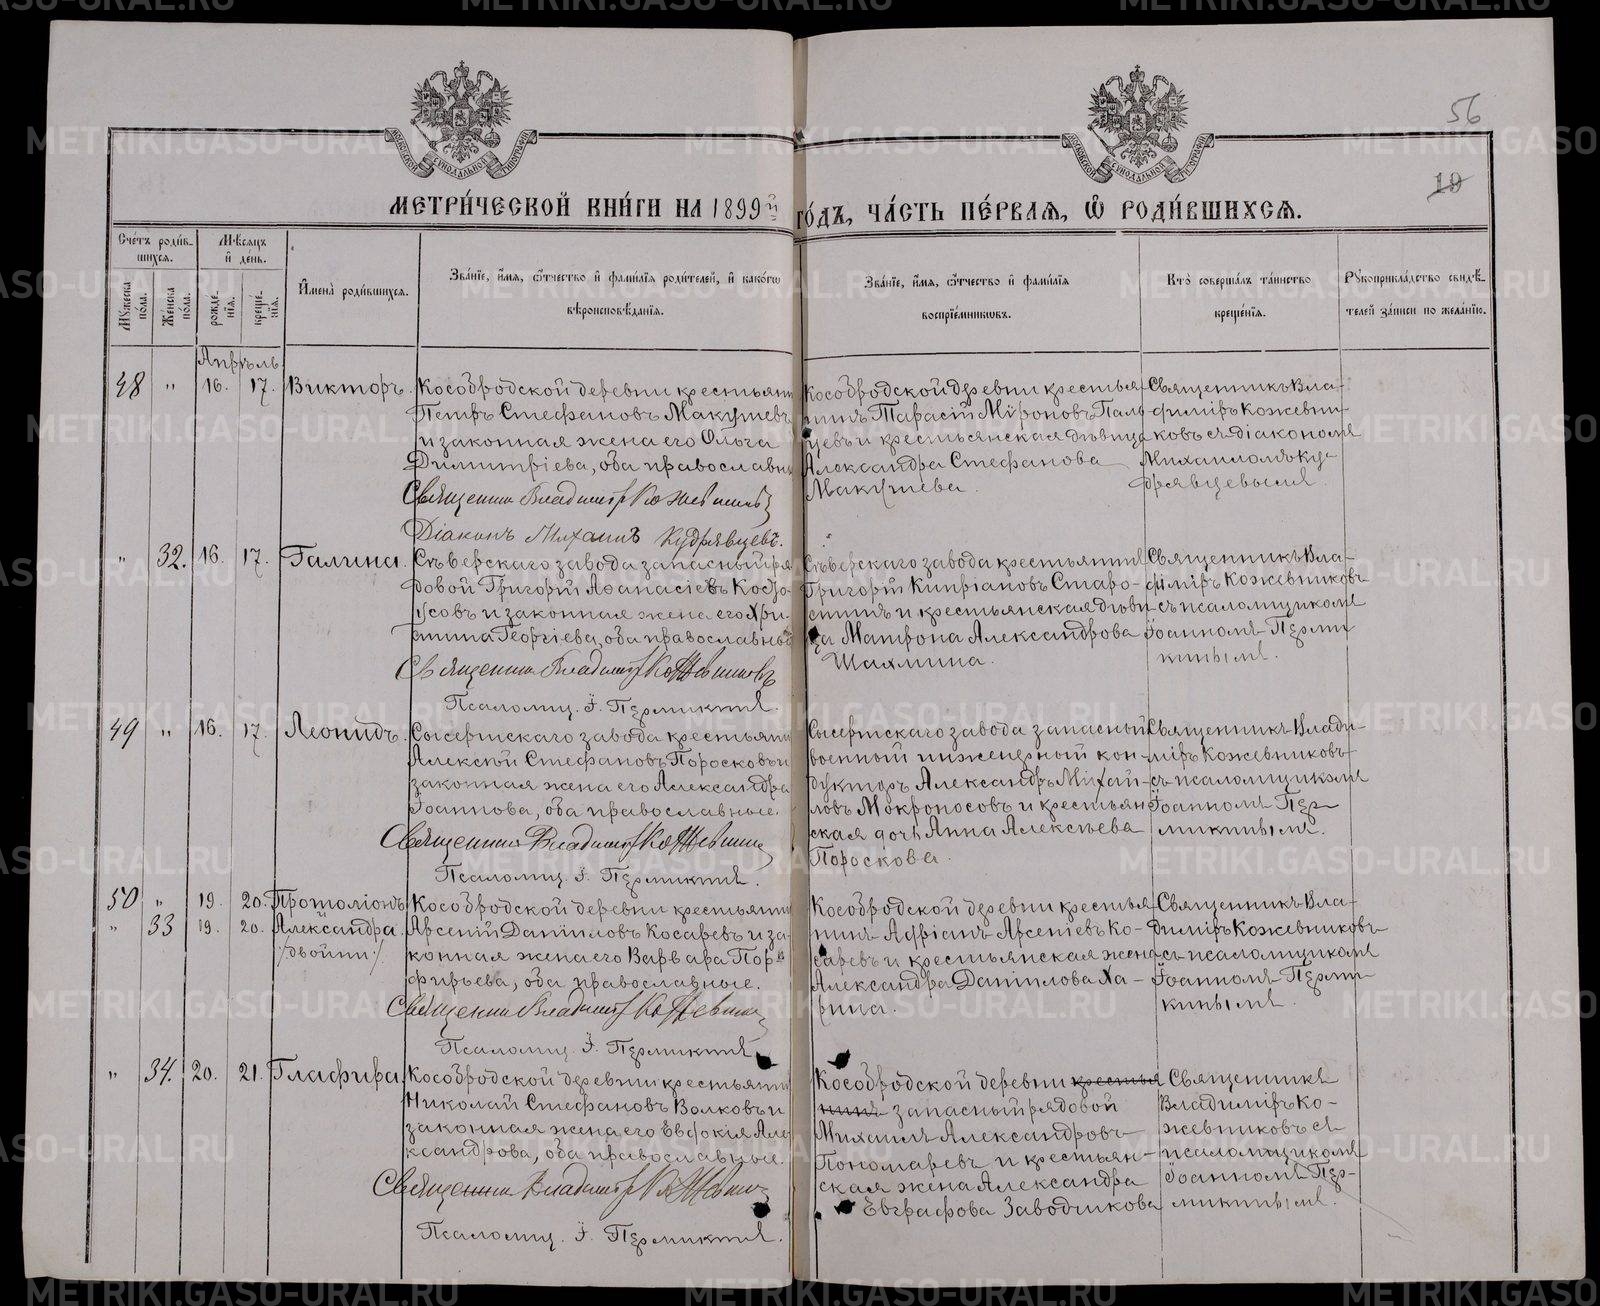 56
19
МОСКОВСКОЙ СѴНОДАЛЬНОЙ ТИПОГРАФІИ
МОСКОВСКОЙ СѴНОДАЛЬНОЙ ТИПОГРАФІИ
МЕТРИ́ЧЕСКОЙ КНИ́ГИ НА 1899й ГО́ДЪ, ЧА́СТЬ ПЕ́РВАЯ, Ѡ РОДИ́ВШИХСЯ.
Сче́тъ роди́в-
шихся.
Мꙋ́жеска по́ла.
Же́нска по́ла.
Мѣ́сяцъ
и҆ де́нь.
рожде́-
нїя.
креще́-
нїя.
И҆мена̀ роди́вшихся.
Зва́нїе, и҆́мя, ѻ҆́тчество и҆ фами́лїя роди́телей, и҆ како́гѡ
вѣроисповѣ́данїя.
Зва́нїе, и҆́мя, ѻ҆́тчество и҆ фами́лїя
воспрїе́мникѡвъ.
Кто̀ соверша́лъ та́инство
креще́нїя.
Рꙋкоприкла́дство свидѣ́-
телей за́писи по жела́нїю.
Апрѣль
48 " 16. 17. Викторъ.
Кособродской деревни крестьянин
Петръ Стефановъ Макушевъ
и законная жена его Ольга
Димитріева, оба православны
Священник Владимір Кожевников
Діаконъ Михаил Кудрявцевъ.
Кособродской деревни крестья-
нинъ Тарасій Мѵроновъ Пал-
цевъ и крестьянская дѣвица
Александра Стефанова
Макушева.
Священникъ Вла-
диміръ Кожевни-
ковъ съ діакономъ
Михаиломъ Ку-
дрявцевымъ.
" 32. 16. 17. Галина.
Сѣверскаго завода запасный ря
довой Григорій Аѳанасіевъ Косто-
усовъ и законная жена его Хри-
стина Георгіева, оба православные
Священник Владимір Кожевниковъ
Псаломщ. І. Пермикинъ.
Сѣверскаго завода крестьянинъ
Григорій Кипріановъ Старо-
стинъ и крестьянская дѣви-
ца Матрона Александрова
Шахмина.
Священникъ Вла-
диміръ Кожевниковъ
съ псаломщикомъ
Іоанномъ Перми-
кинымъ.
49 " 16. 17. Леонидъ.
Сысертскаго завода крестьянин
Алексѣй Стефановъ Поросковъ и
законная жена его Александра
Іоаннова, оба православные.
Священник Владимір Кожевник
Псаломщ. І. Пермикинъ.
Сысертскаго завода запасный
военный инженерный кон-
дукторъ Александръ Михай-
ловъ Мокроносовъ и крестьян-
ская дочь Анна Алексѣева
Пороскова.
Священникъ Влади-
міръ Кожевниковъ
съ псаломщикомъ
Іоанномъ Пер-
микинымъ.
50 " 19. 20. Протоліонъ
" 33 19. 20. Александра.
/двойни/
Кособродской деревни крестьянин
Арсеній Даніиловъ Косаревъ и за-
конная жена его Варвара Пор-
фирьева, оба православные.
Священник Владимір Кожевник
Псаломщ. І. Пермикинъ.
Кособродской деревни крестья-
нинъ Адріанъ Арсеніевъ Ко-
саревъ и крестьянская жена
Александра Даніилова Ха-
рина.
Священникъ Вла-
диміръ Кожевниковъ
съ псаломщикомъ
Іоанномъ Перми-
кинымъ.
" 34. 20. 21. Глафира.
Кособродской деревни крестьянин
Николай Стефановъ Волковъ и
законная жена его Евдокія Але-
ксандрова, оба православные.
Священник Владимір Кожевник
Псаломщ. І. Пермикинъ.
Кособродской деревни крестья
нинъ запасный рядовой
Михаилъ Александровъ
Пономаревъ и крестьян-
ская жена Александра
Евграфова Заводчикова
Священникъ
Владиміръ Ко-
жевниковъ съ
псаломщикомъ
Іоанномъ Пер-
микинымъ.
METRIKI.GASO-URAL.RU